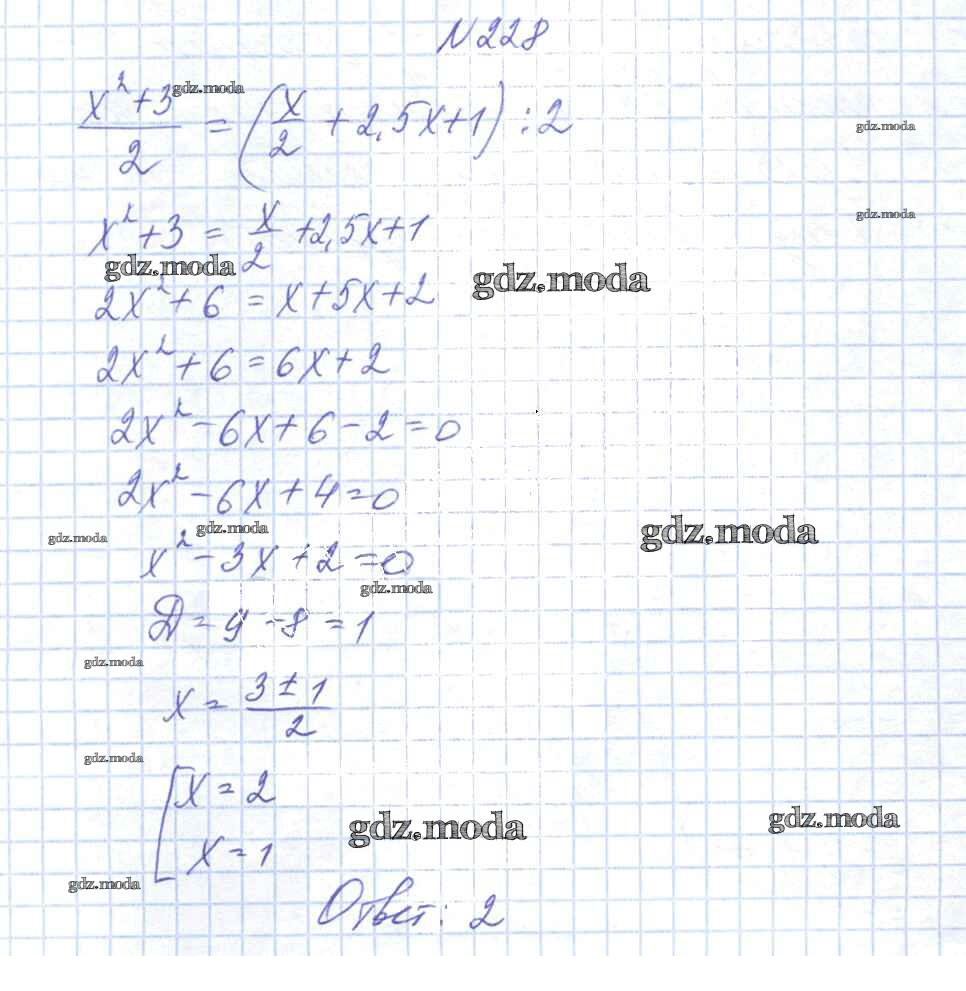 N228
gdz.moda
(x²+3)/2 = (x/2 + 2,5x+1) : 2
gdz.moda
gdz.moda
x²+3 = x/2 +2,5x+1
gdz.moda
gdz.moda
2x²+6 = x+5x+2
2x²+6=6x+2
2x²-6x+6-2=0
2x²-6x+4=0
gdz.moda
gdz.moda
gdz.moda
x²-3x+2=0
gdz.moda
Д=9-8=1
gdz.moda
x = (3±1)/2
gdz.moda
[x=2
x=1
gdz.moda
gdz.moda
gdz.moda
Ответ: 2